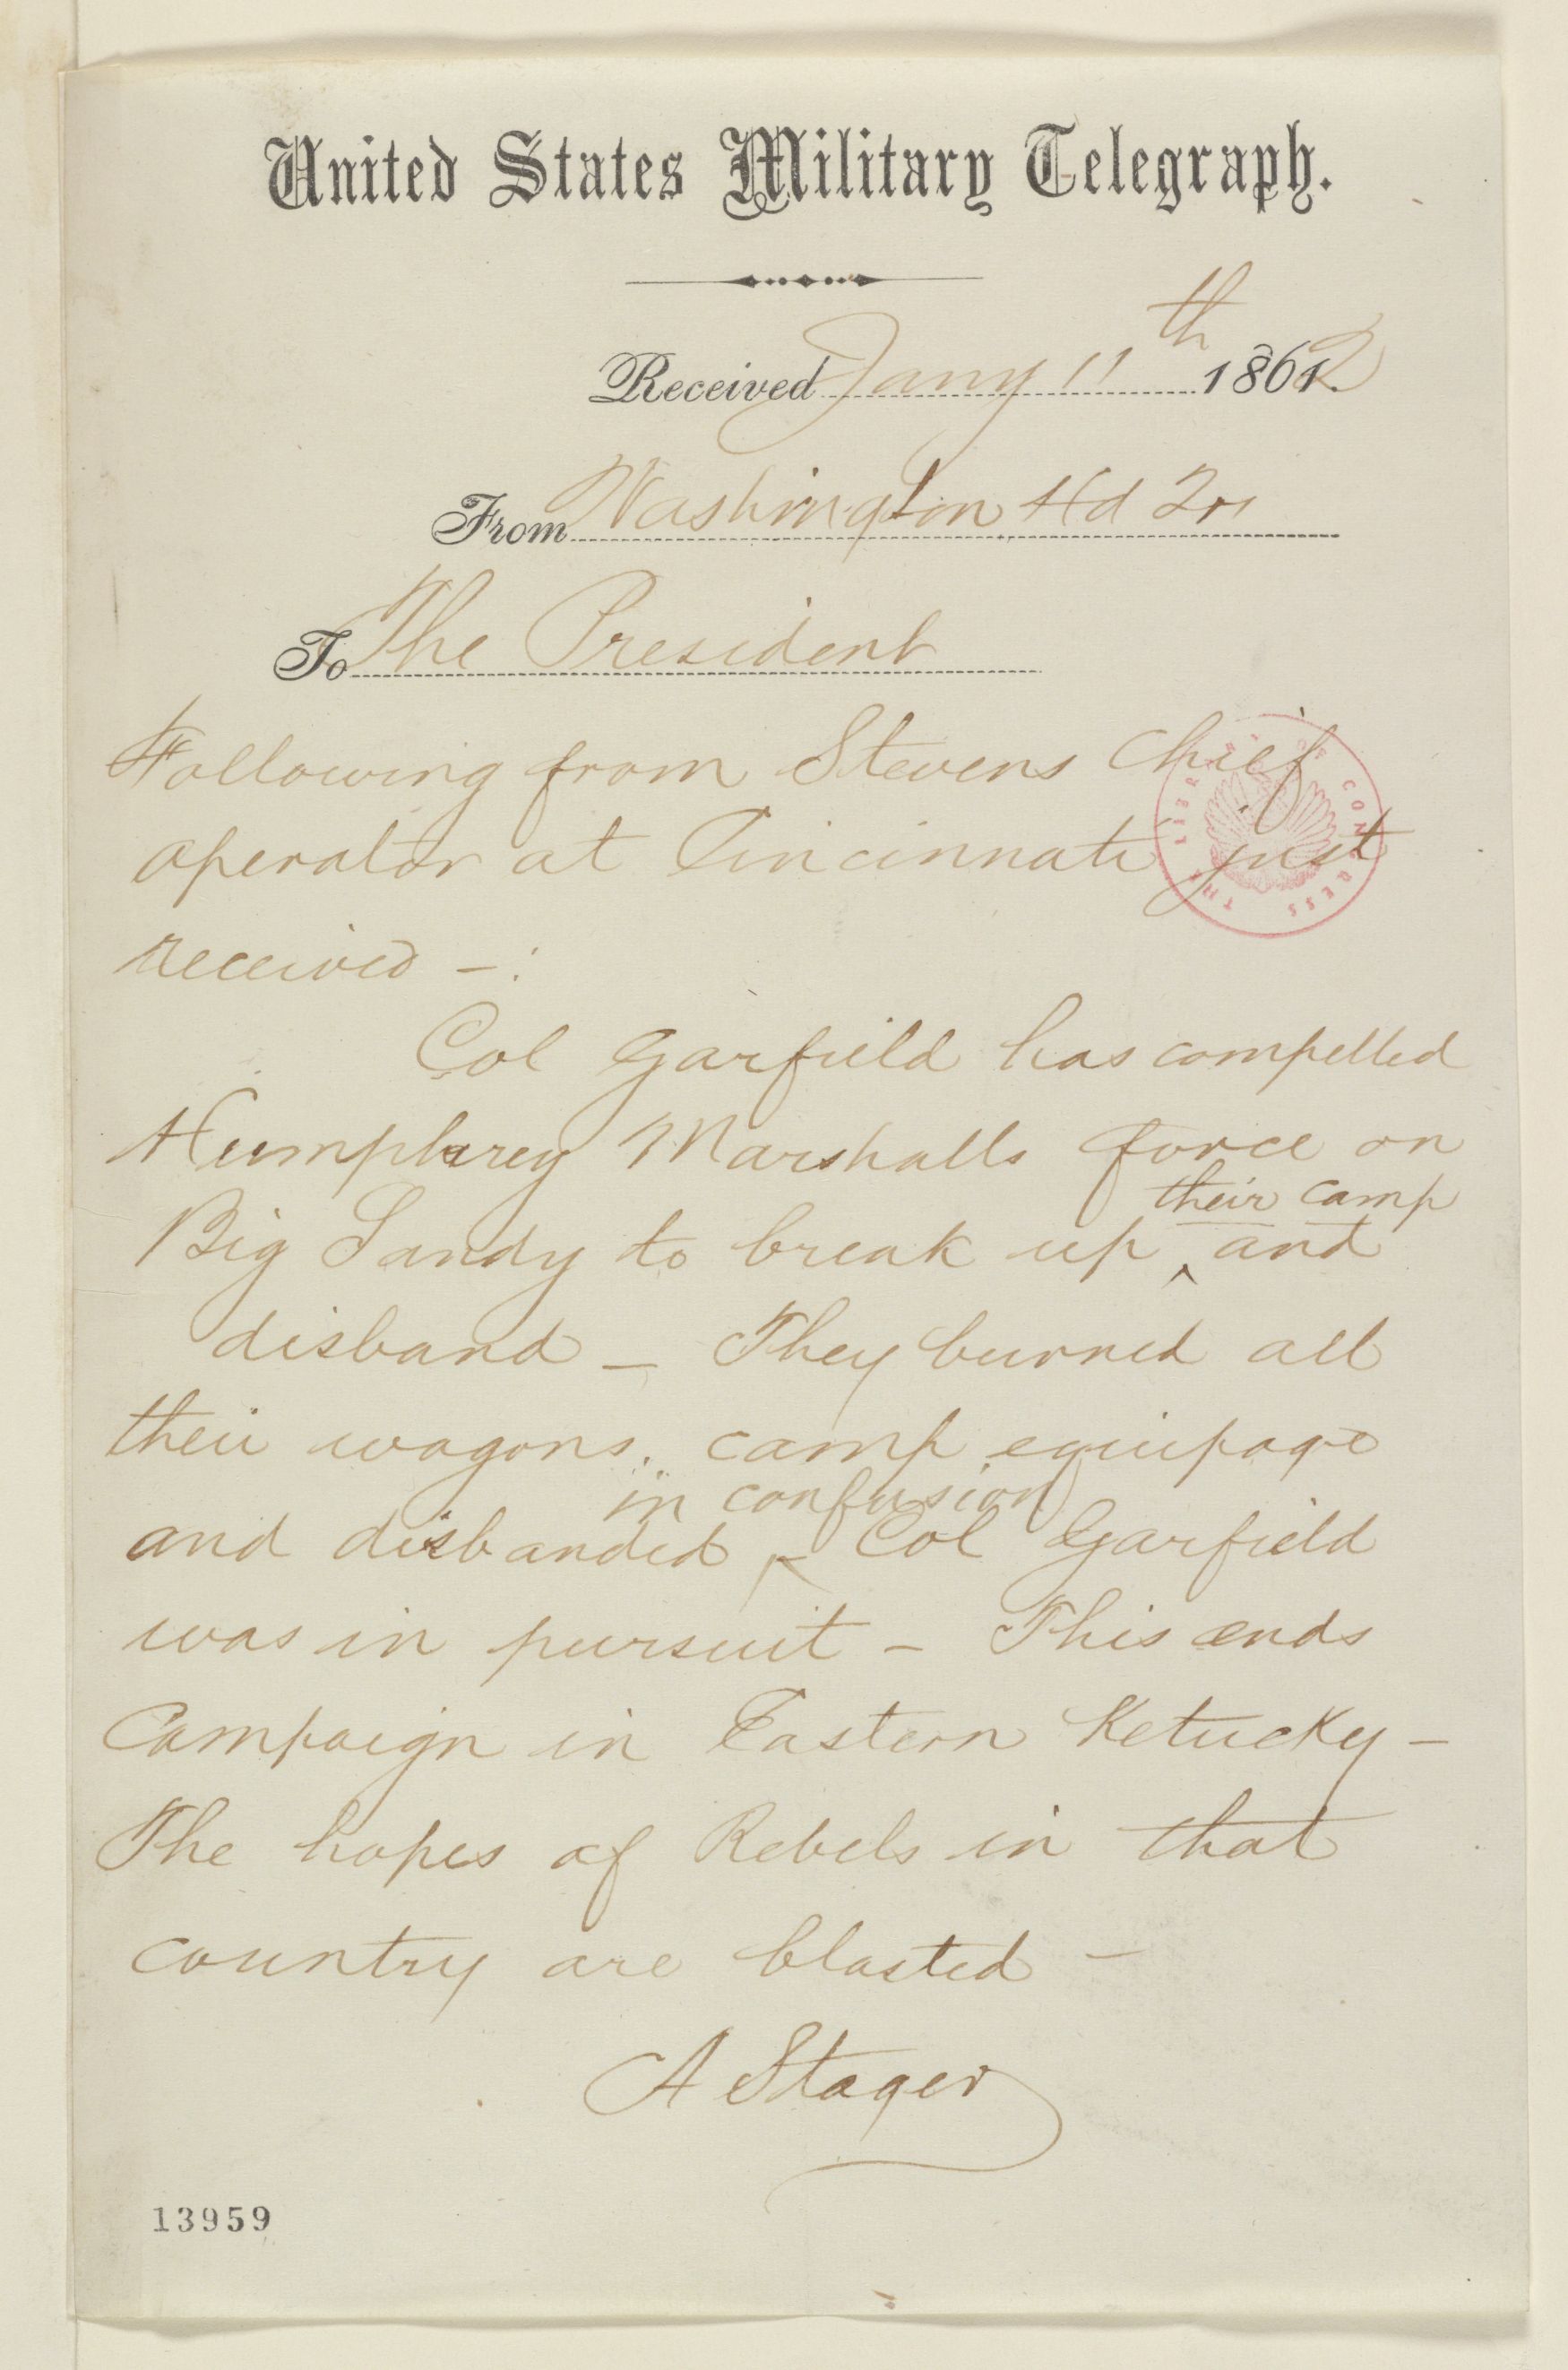 United States Military Telegraph.
Received Jany 11th 1862
From Washington Hd Qrs
To The President
Following from Stevens Chief
operator at Cincinnati just
received - :
THE LIBRARY OF CONGRESS
Col Garfield has compelled
Humphrey Marshalls force on
their camp
Big Sandy to break up ^ and
disband - They burned all
their wagons. camp equipage
in confusion
and disbanded ^ - Col Garfield
was in pursuit - This ends
Campaign in Eastern Ketucky -
The hopes of Rebels in that
country are blasted -
A Stager
13959